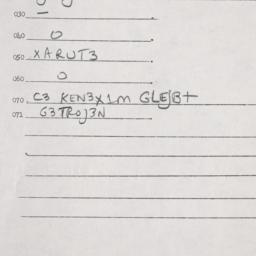 030 —
040 0
050 XARUT3
060 0
070 C3 KEN3X1M GLEJB+
071 G3TROJ3N